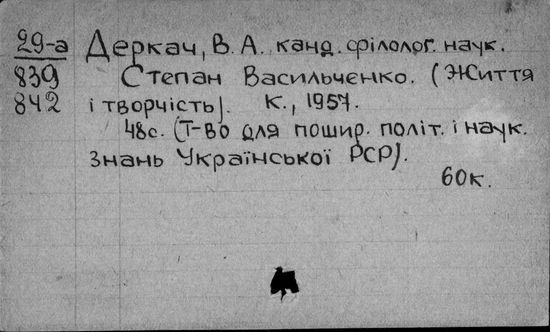 29-а Деркач, В. А. канд. філолог. наук.
839 Степан Васильченко. (Життя
842 і творчість). К., 1957.
48с. (Т-во для пошир. політ. і наук.
знань Української РСР).
60к.